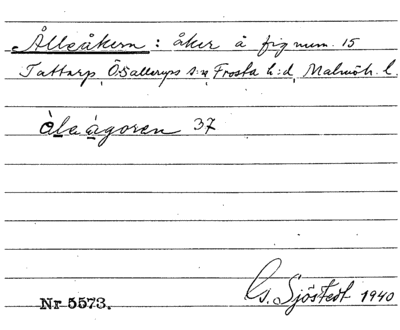 Ålleåkern: åker å fig num. 15
Tattarp, Ö. Sallerups s:n, Frosta h:d, Malmöh. l.
àlaågoren 37
Nr 5573.
G. Sjöstedt 1940